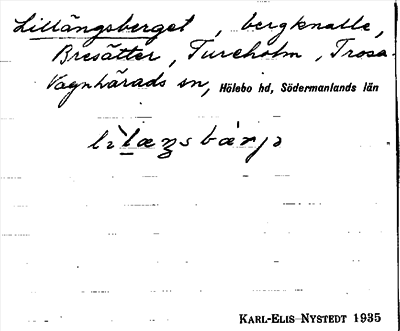 Lillängsberget, bergknalle,
Bresätter, Tureholm, Trosa-
Vagnhärads sn, Hölebo hd, Södermanlands län
KARL-ELIS NYSTEDT 1935